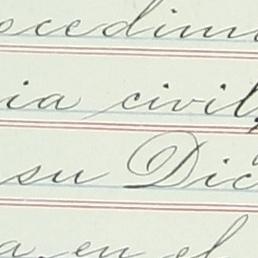 ocedim
ia civil,
su Dic
a en el